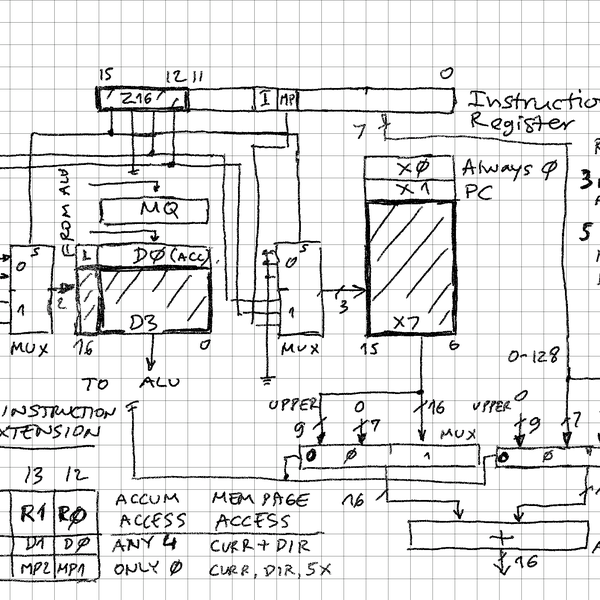 15 12 11 0
Z16 I MP Instructio
Register
7
XØ Always Ø
X1 PC
FROM ALU
MQ
3
5
S 1 DØ (ACC) S
0 0
2 3
1 D3 1 X7
MUX 16 0 MUX 15 6
0-128
TO ALU
INSTRUCTION
XTENSION
UPPER 0 16 UPPER 0
9 7 9 7
MUX
0 Ø 1 0 Ø
13 12
R1 RØ ACCUM MEM PAGE
ACCESS ACCESS
16
D1 DØ ANY 4 CURR + DIR
MP2 MP1 ONLY Ø CURR, DIR, 5X
+
16